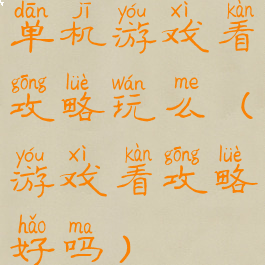 dān jī yóu xì kàn
单机游戏看
gōng lüè wán me
攻略玩么（
yóu xì kàn gōng lüè
游戏看攻略
hǎo ma
好吗）